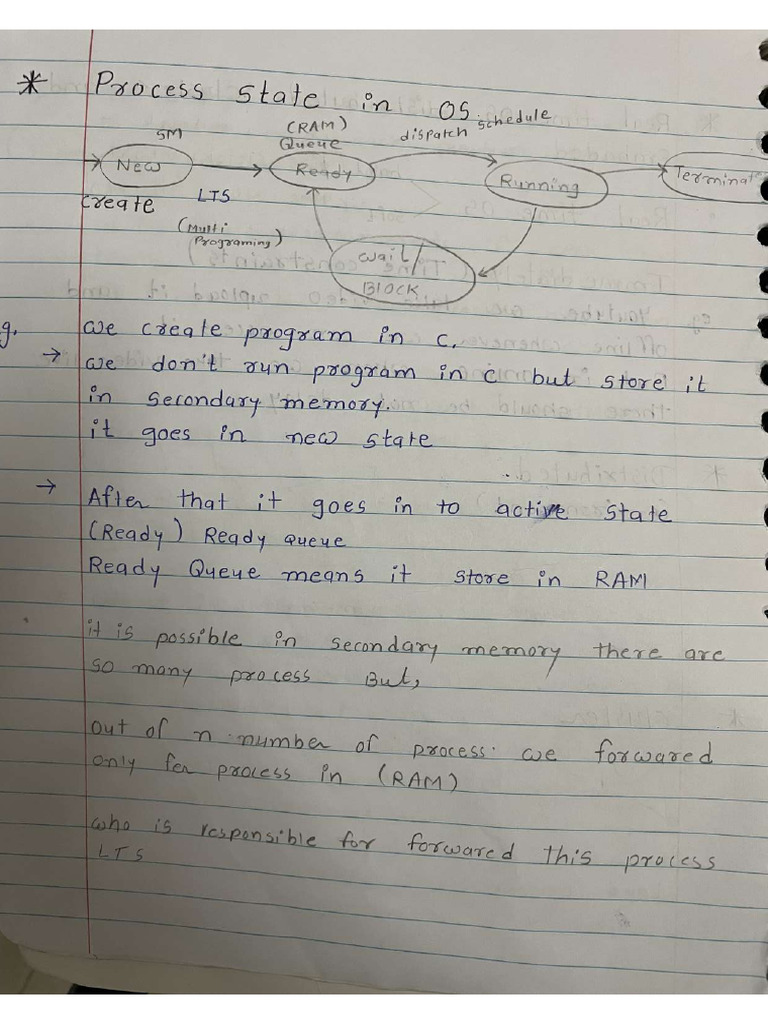 * Process state in OS
SM
(RAM)
Queue
dispatch schedule
New
Ready
Running
Terminat
create
LTS
(Multi
Programing)
wait/
BLOCK
g. we create program in c.
→ we don't run program in c but store it
in secondary memory.
it goes in new state
→ After that it goes in to active state
(Ready) Ready queue
Ready Queue means it store in RAM
it is possible in secondary memory there are
so many process But,
out of n number of process we forwared
only fer process in (RAM)
who is responsible for forwared this process
LTS